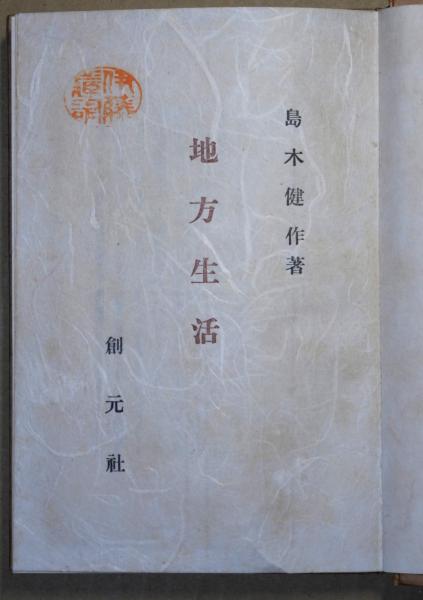 島木健作著
地方生活
創元社